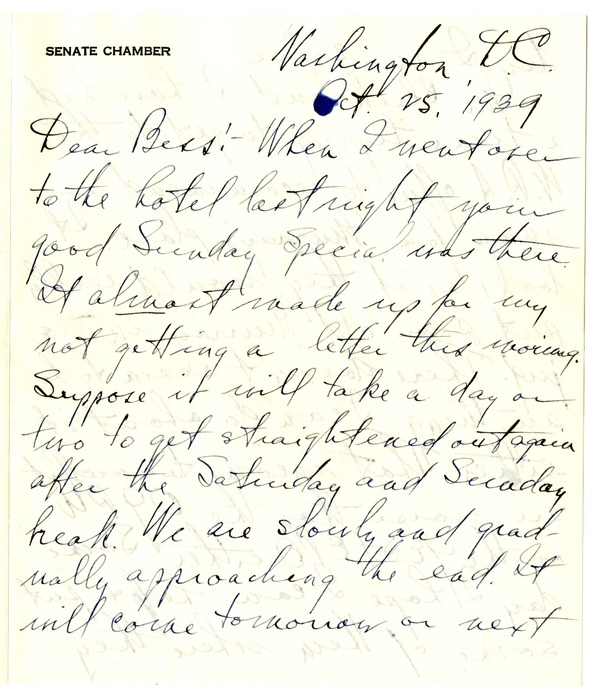 SENATE CHAMBER
Washington D.C.
Oct. 25, 1939
Dear Bess:- When I went over
to the hotel last night your
good Sunday Special was there.
It almost made up for my
not getting a letter this morning.
Suppose it will take a day or
two to get straightened out again
after the Saturday and Sunday
break. We are slowly and grad-
ually approaching the end. It
will come tomorrow or next